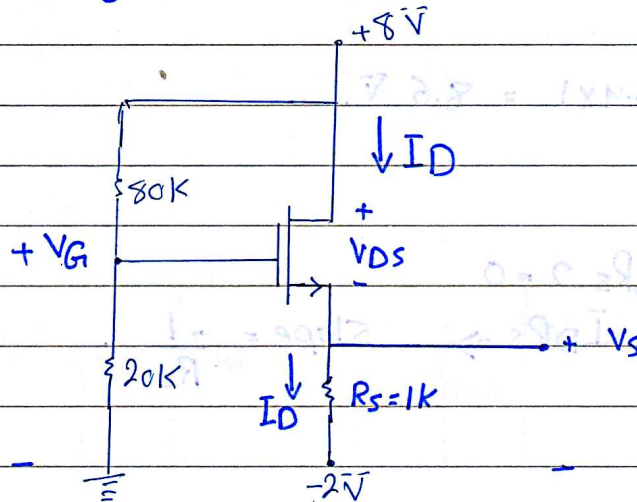 +8V
I_D
80K
+
+ V_G
V_DS
-
+ V_S
20K
I_D
R_S=1K
-
-2V
-